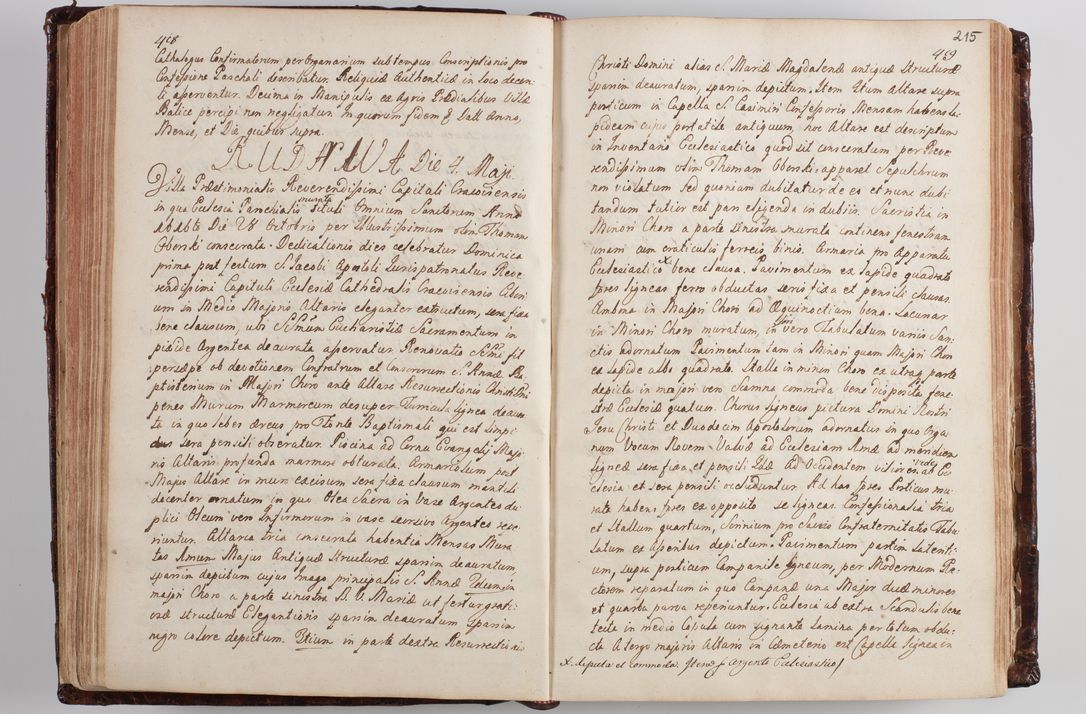 408
Cathalogus Confirmatorum per Organarium sub tempus Conscriptionis pro
Confessione Paschali describatur. Reliquiæ Authenticæ in loco decen-
ti asserventur. Decima in Manipulis ex Agris Prædialibus Villæ
Balice percipi non negligatur. In quorum fidem Datt Anno,
Mense, et Die quibus supra.
RUDAWA Die 4. Maji
Villa Præstimonialis Reverendissimi Capituli Cracoviensis
in qua Ecclesia Parochialis murata Tituli Omnium Sanctorum Anno
Die 28 Octobris per Illustrissimum olim Thomam
Oborski consecrata. Dedicationis dies celebratur Dominica
prima post festum S. Jacobi Apostoli Jurispatronatus Reve-
rendissimi Capituli Ecclesiæ Cathedralis Cracoviensis Cibori-
um in Medio Majoris Altaris eleganter extructum, sera fixa
bene clausum, ubi SSmum Eucharistiæ Sacramentum in
pixide Argentea deaurata asservatur Renovatio SSmi fit
persæpe ob devotionem Confratrum et Consororum S. Annæ Ba-
ptisterium in Majori Choro ante Altare Resurrectionis Christi Dni
penes Murum Marmoreum desuper Turricula lignea deaura-
ta in quo lebes æreus pro Fonte Baptismali qui est simpli-
sera pensili obseratur. Piscina ad Cornu Evangelij Majo-
ris Altaris profunda marmore obturata. Armariolum post
Majus Altare in muro excisum sera fixa clausum mantili
decenter ornatum in quo Olea Sacra in Vase Argenteo du-
plici Oleum vero Infirmorum in vase seorsivo Argenteo repe-
riuntur. Altaria tria consecrata habentia Mensas Mura-
tas Imum Majus Antiquæ Structuræ sparsim deauratum,
sparsim depictum cujus Imago principalis S. Annæ 2dum in
majri Choro a parte sinistra B. V. Mariæ ut fertur grati-
osæ structuræ Elegantioris sparsim deauratum sparsim
nigro colore depictum. 3tium in parte dextra Resurrectionis
215
409
Christi Domini alias S. Mariæ Magdalenæ antiquæ Structuræ
sparsim deauratum, sparsim depictum. Item 4tum altare supra
porticum in Capella S. Casimiri Confessoris Mensam habens la-
pideam cujus portatile antiquum, hoc Altare est descriptum
in Inventario Ecclesiastico quod sit consecratum per Reve-
rendissimum olim Thomam Oborski, apparet Sepulchrum
non violatum sed quoniam dubitatur de eo et nunc dubi-
tandum tutior est pars eligenda in dubiis. Sacristia in
Minori Choro a parte sinistra murata continens fenestram
unam cum craticulis ferreis binis. Armaria pro Apparatu
Ecclesiastico x bene clausa. Pavimentum ex lapide quadrato
fores ligneas ferro obductas seris fixa et pensili clausas.
Ambona in Majori Choro ad Æquinoctium bona. Lacunar
in Minori Choro muratum, in Mjri vero Tabulatum variis San-
ctis adornatum Pavimentum tam in Minori quam Majori Choro
ex lapide albo quadrato. Stalla in minori Choro ex utraq parte
depicta in majori vero Scamna commoda bene disposita fene-
stræ Ecclesiæ quatuor. Chorus ligneus pictura Domini Nostri
Jesu Christi et Duodecim Apostolorum adornatus in quo Orga-
num Vocum Novem. Valvæ ad Ecclesiam Imæ ad meridiem
ligneæ sera fixa et pensili 2dæ ad Occidentem viliores vecte ab Ec-
clesia et sera pensili occluduntur. Ad has fores Porticus mu-
rata habens fores ex opposito se ligneas. Confessionalia tria
et Stallum quartum, Scrinium pro cereis Confraternitatis Tabu-
latum ex Asseribus depictum. Pavimentum partim lateriti-
um, supra porticum Campanile ligneum, per Modernum Re-
ctorem reparatum in quo Campanæ una Major duæ minores
et quarta parva reperiuntur. Ecclesia ab extra Scandulis bene
tecta in medio Copula cum signante lamina per totum obdu-
cta. A tergo majoris Altaris in Cæmeterio est Capella lignea in
x. deposita et commoda. Item pro Argento Ecclesiastico